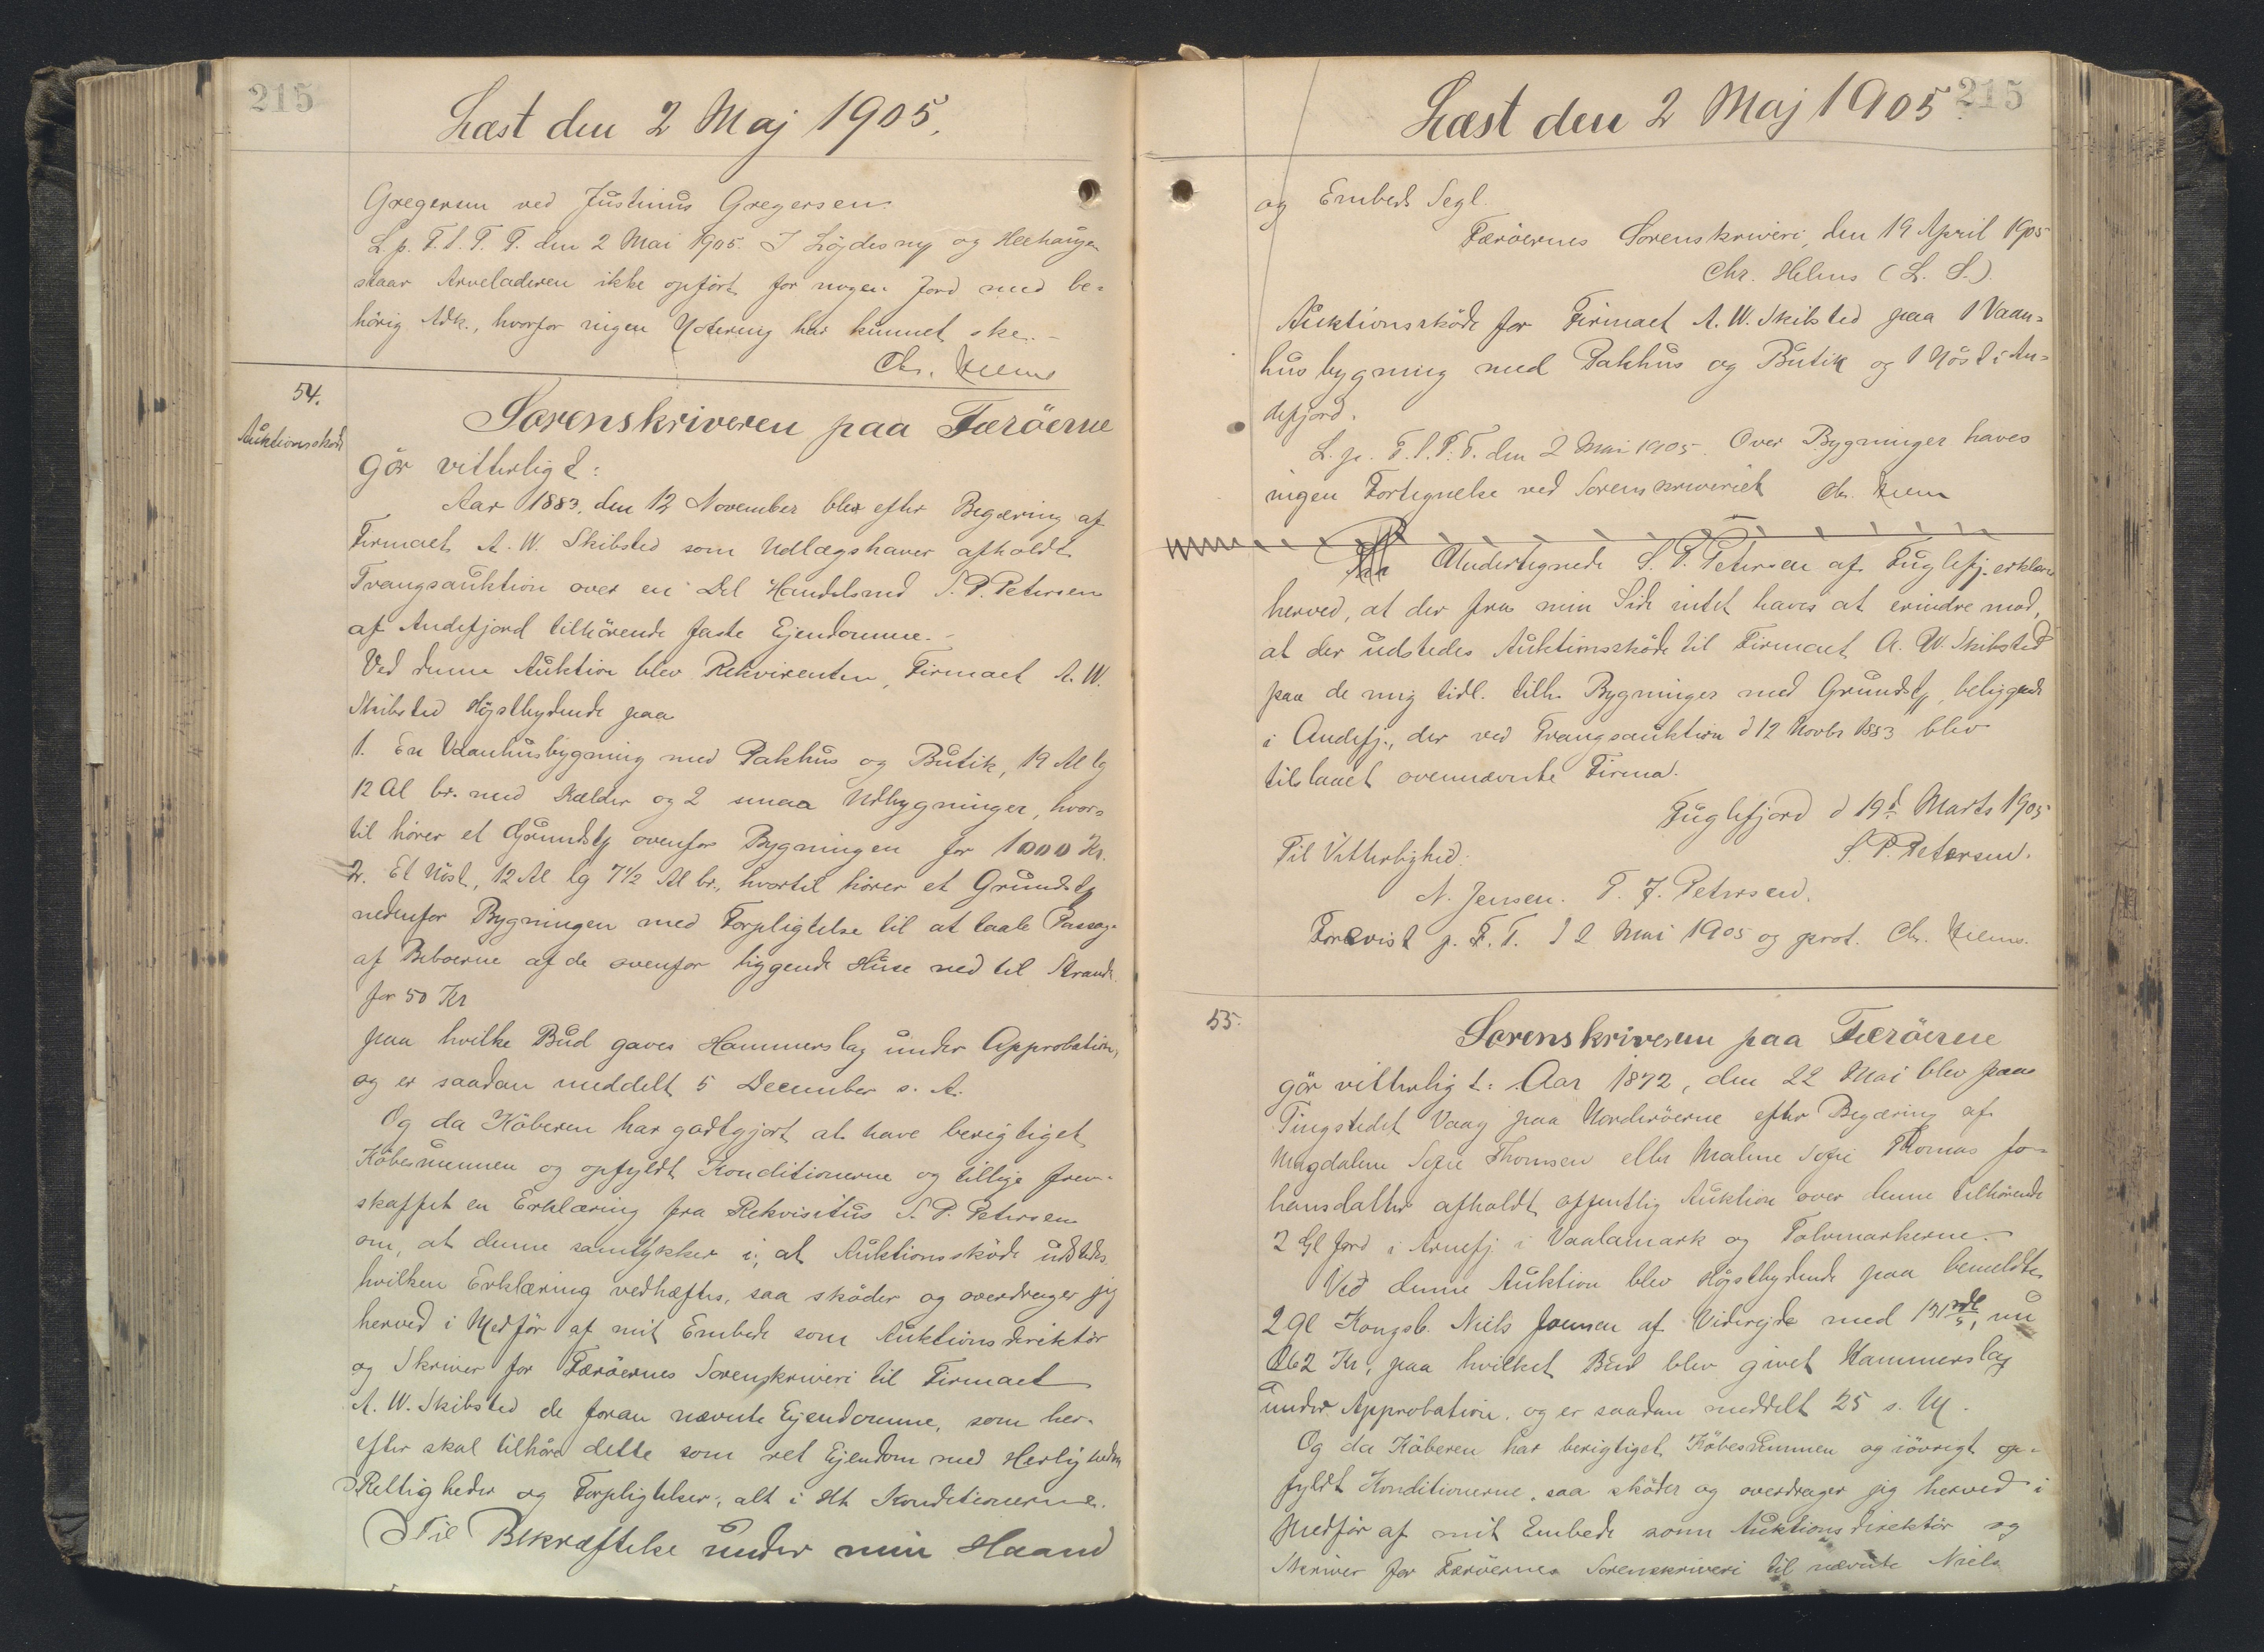 215
Læst den 2 Maj 1905.
Gregersen ved Justinus Gregersen
L. p. F. S. T. T. den 2 Mai 1905. I Löjdesnyp og Heehaugen
staar Arveladeren ikke opfört for nogen Jord med be=
hörig Adk., hvorfor ingen Notering har kunnet ske.-
Chr. Helms
54.
Auktionsskøde
Sorenskriveren paa Færöerne
gör vitterligt:
Aar 1883, den 12 November blev efter Begæring af
Firmaet A. W. Skibsted som Udlægshaver afholdt
Tvangsauktion over en Del Handelsmd S. P. Petersen
af Andefjord tilhörende faste Ejendomme.-
Ved denne Auktion blev Rekvirenten, Firmaet A. W.
Skibsted Höjstbydende paa
1. En Vaanhusbygning med Pakhus og Butik, 19 Al lg
12 Al br. med Kælder og 2 smaa Udbygninger, hvor=
til hörer et Grundstg ovenfor Bygningen for 1000 Kr.
2. Et Nöst, 12 Al lg 7½ Al br., hvortil hörer et Grundstg
nedenfor Bygningen med Forpligtelse til at taale Passage
af Beboerne af de ovenfor liggende Huse ned til Strand
for 50 Kr
paa hvilke Bud gaves Hammerslag under Approbation,
og er saadan meddelt 5 December s. A.
Og da Köberen har godtgjort at have berigtiget
Köbesummen og opfyldt Konditionerne og tillige frem-
skaffet en Erklæring fra Rekvisitus S. P. Petersen
om, at denne samtykker i, at Auktionsskøde udstedes,
hvilken Erklæring vedhæftes, saa sköder og overdrager jeg
herved i Medför af mit Embede som Auktionsdirektör
og Skriver for Færöernes Sorenskriveri til Firmaet
A. W. Skibsted de foran nævnte Ejendomme, som her-
efter skal tilhöre dette som ret Ejendom med Herligheder
Rettigheder og Forpligtelser, alt i Hh Konditionerne.
Til Bekræftelse under min Haand
215
Læst den 2 Maj 1905
og Embeds Segl.
Færöernes Sorenskriveri, den 19 April 1905
Chr. Helms (L. S.)
Auktionsskøde for Firmaet A. W. Skibsted paa 1 Vaan=
husbygning med Pakhus og Butik og 1 Nöst i An=
defjord.
L. p. F. S. T. T. den 2 Mai 1905. Over Bygninger haves
ingen Fortegnelse ved Sorenskriveriet Chr. Helms
Undertegnede S. P. Petersen af Fuglefj. erklærer
herved, at der fra min Side intet haves at erindre mod,
at der udstedes Auktionsskøde til Firmaet A. W. Skibsted
paa de mig tidl. tilh. Bygninger med Grundstg, beliggende
i Andefj., der ved Tvangsauktion d 12 Novbr 1883 blev
tilslaaet ovennævnte Firma.
Fuglefjord d 19d Marts 1905
S. P. Petersen.
Til Vitterlighed:
N. Jensen. T. J. Petersen.
Forevist p. F. T. d 2 Mai 1905 og prot. Chr. Helms.
55.
Sorenskriveren paa Færöerne
gör vitterligt: Aar 1872, den 22 Mai blev paa
Tingstedet Vaag paa Norderöerne efter Begæring af
Magdalene Sofie Thomsen eller Malene Sofie Thomas Jo=
hansdatter afholdt offentlig Auktion over denne tilhörende
2 Gl Jord i Arnefj. i Vaalamark og Tolvmarkerne.-
Ved denne Auktion blev Höjstbydende paa bemeldte
2 Gl Kongsb. Niels Joensen af Viderejde med 131 rdl, nu
262 Kr, paa hvilket Bud blev givet Hammerslag
under Approbation, og er saadan meddelt 25 s. M.
Og da Köberen har berigtiget Köbesummen og iövrigt op=
fyldt Konditionerne, saa sköder og overdrager jeg herved i
Medför af mit Embede som Auktionsdirektör og
Skriver for Færöernes Sorenskriveri til nævnte Niels